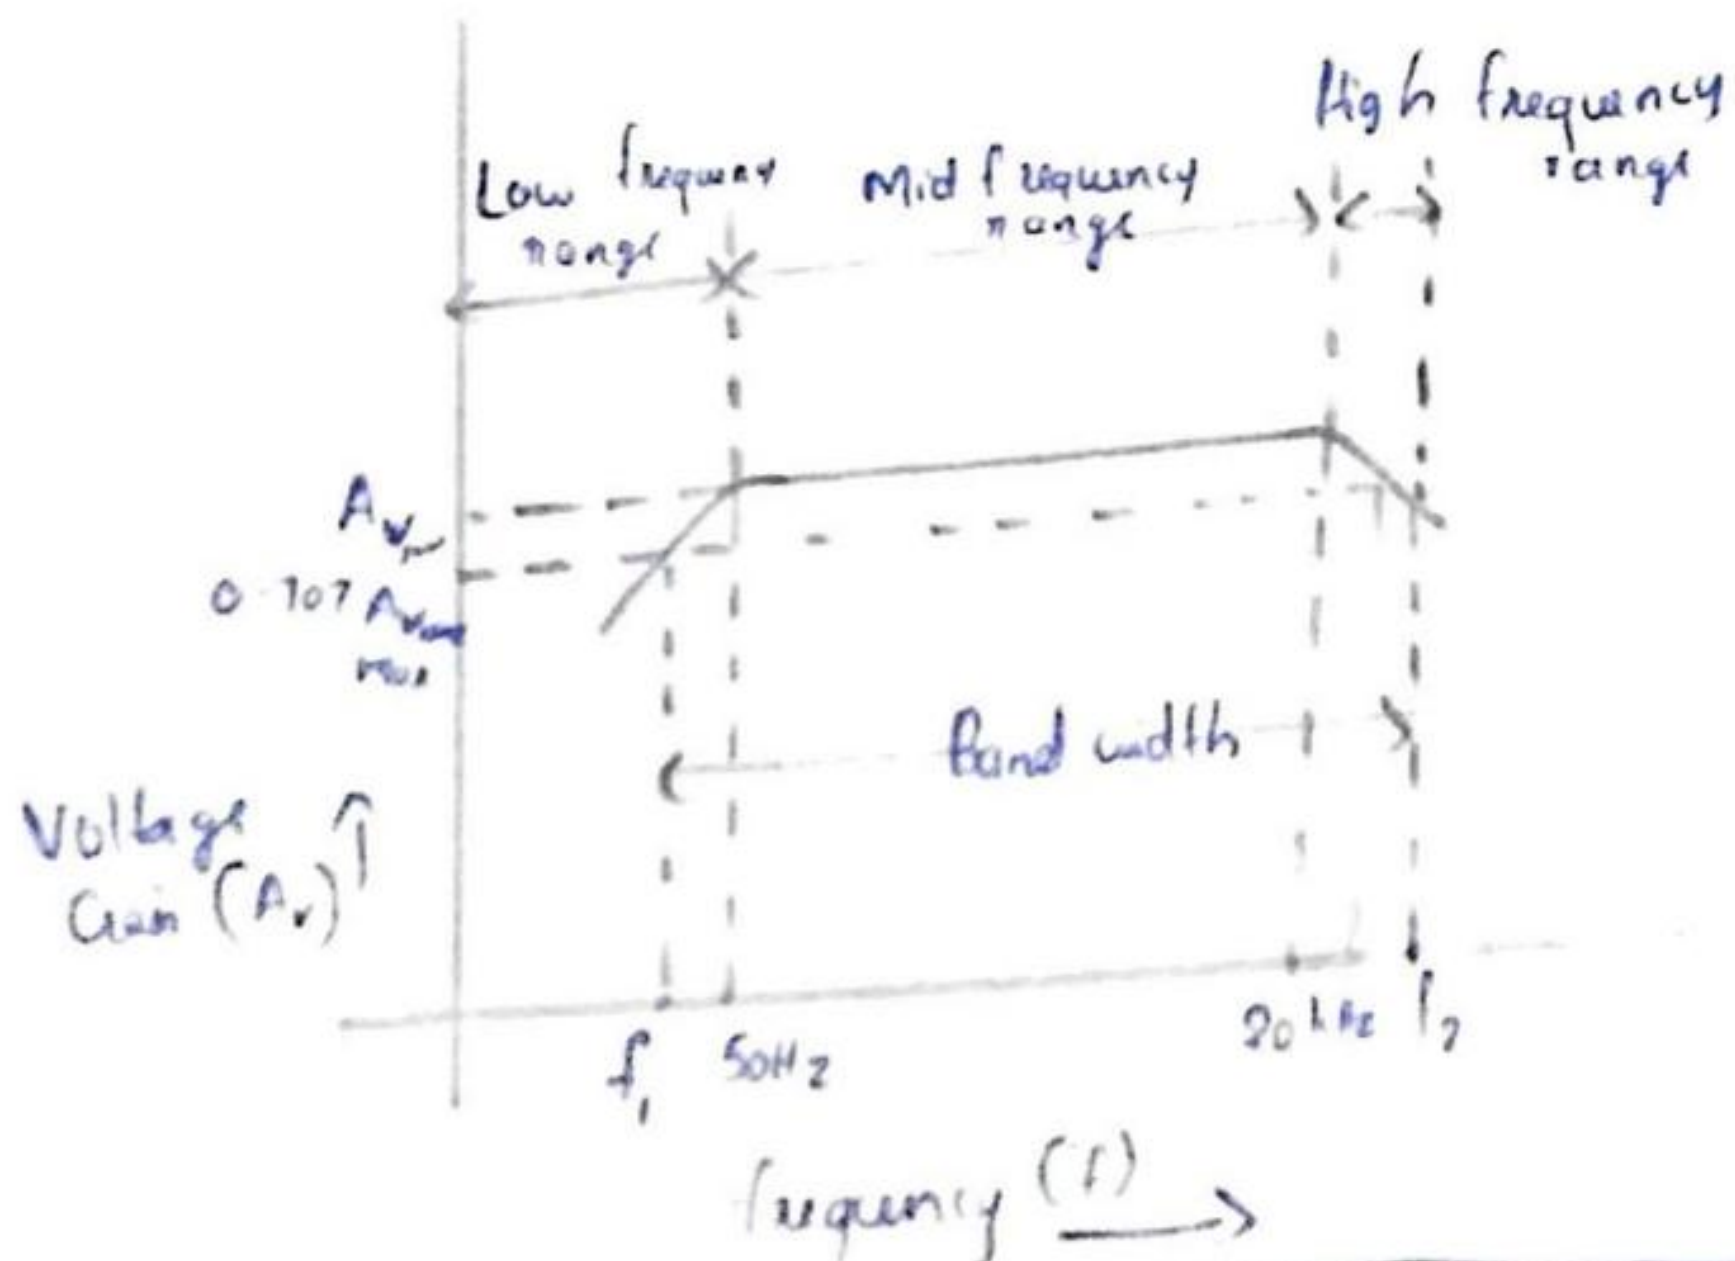 High frequency
range
Low frequency
range
Mid frequency
range
Av
0.707 Av
max
Band width
Voltage
Gain (Av) ↑
f1 50Hz
20 kHz f2
frequency (f) →